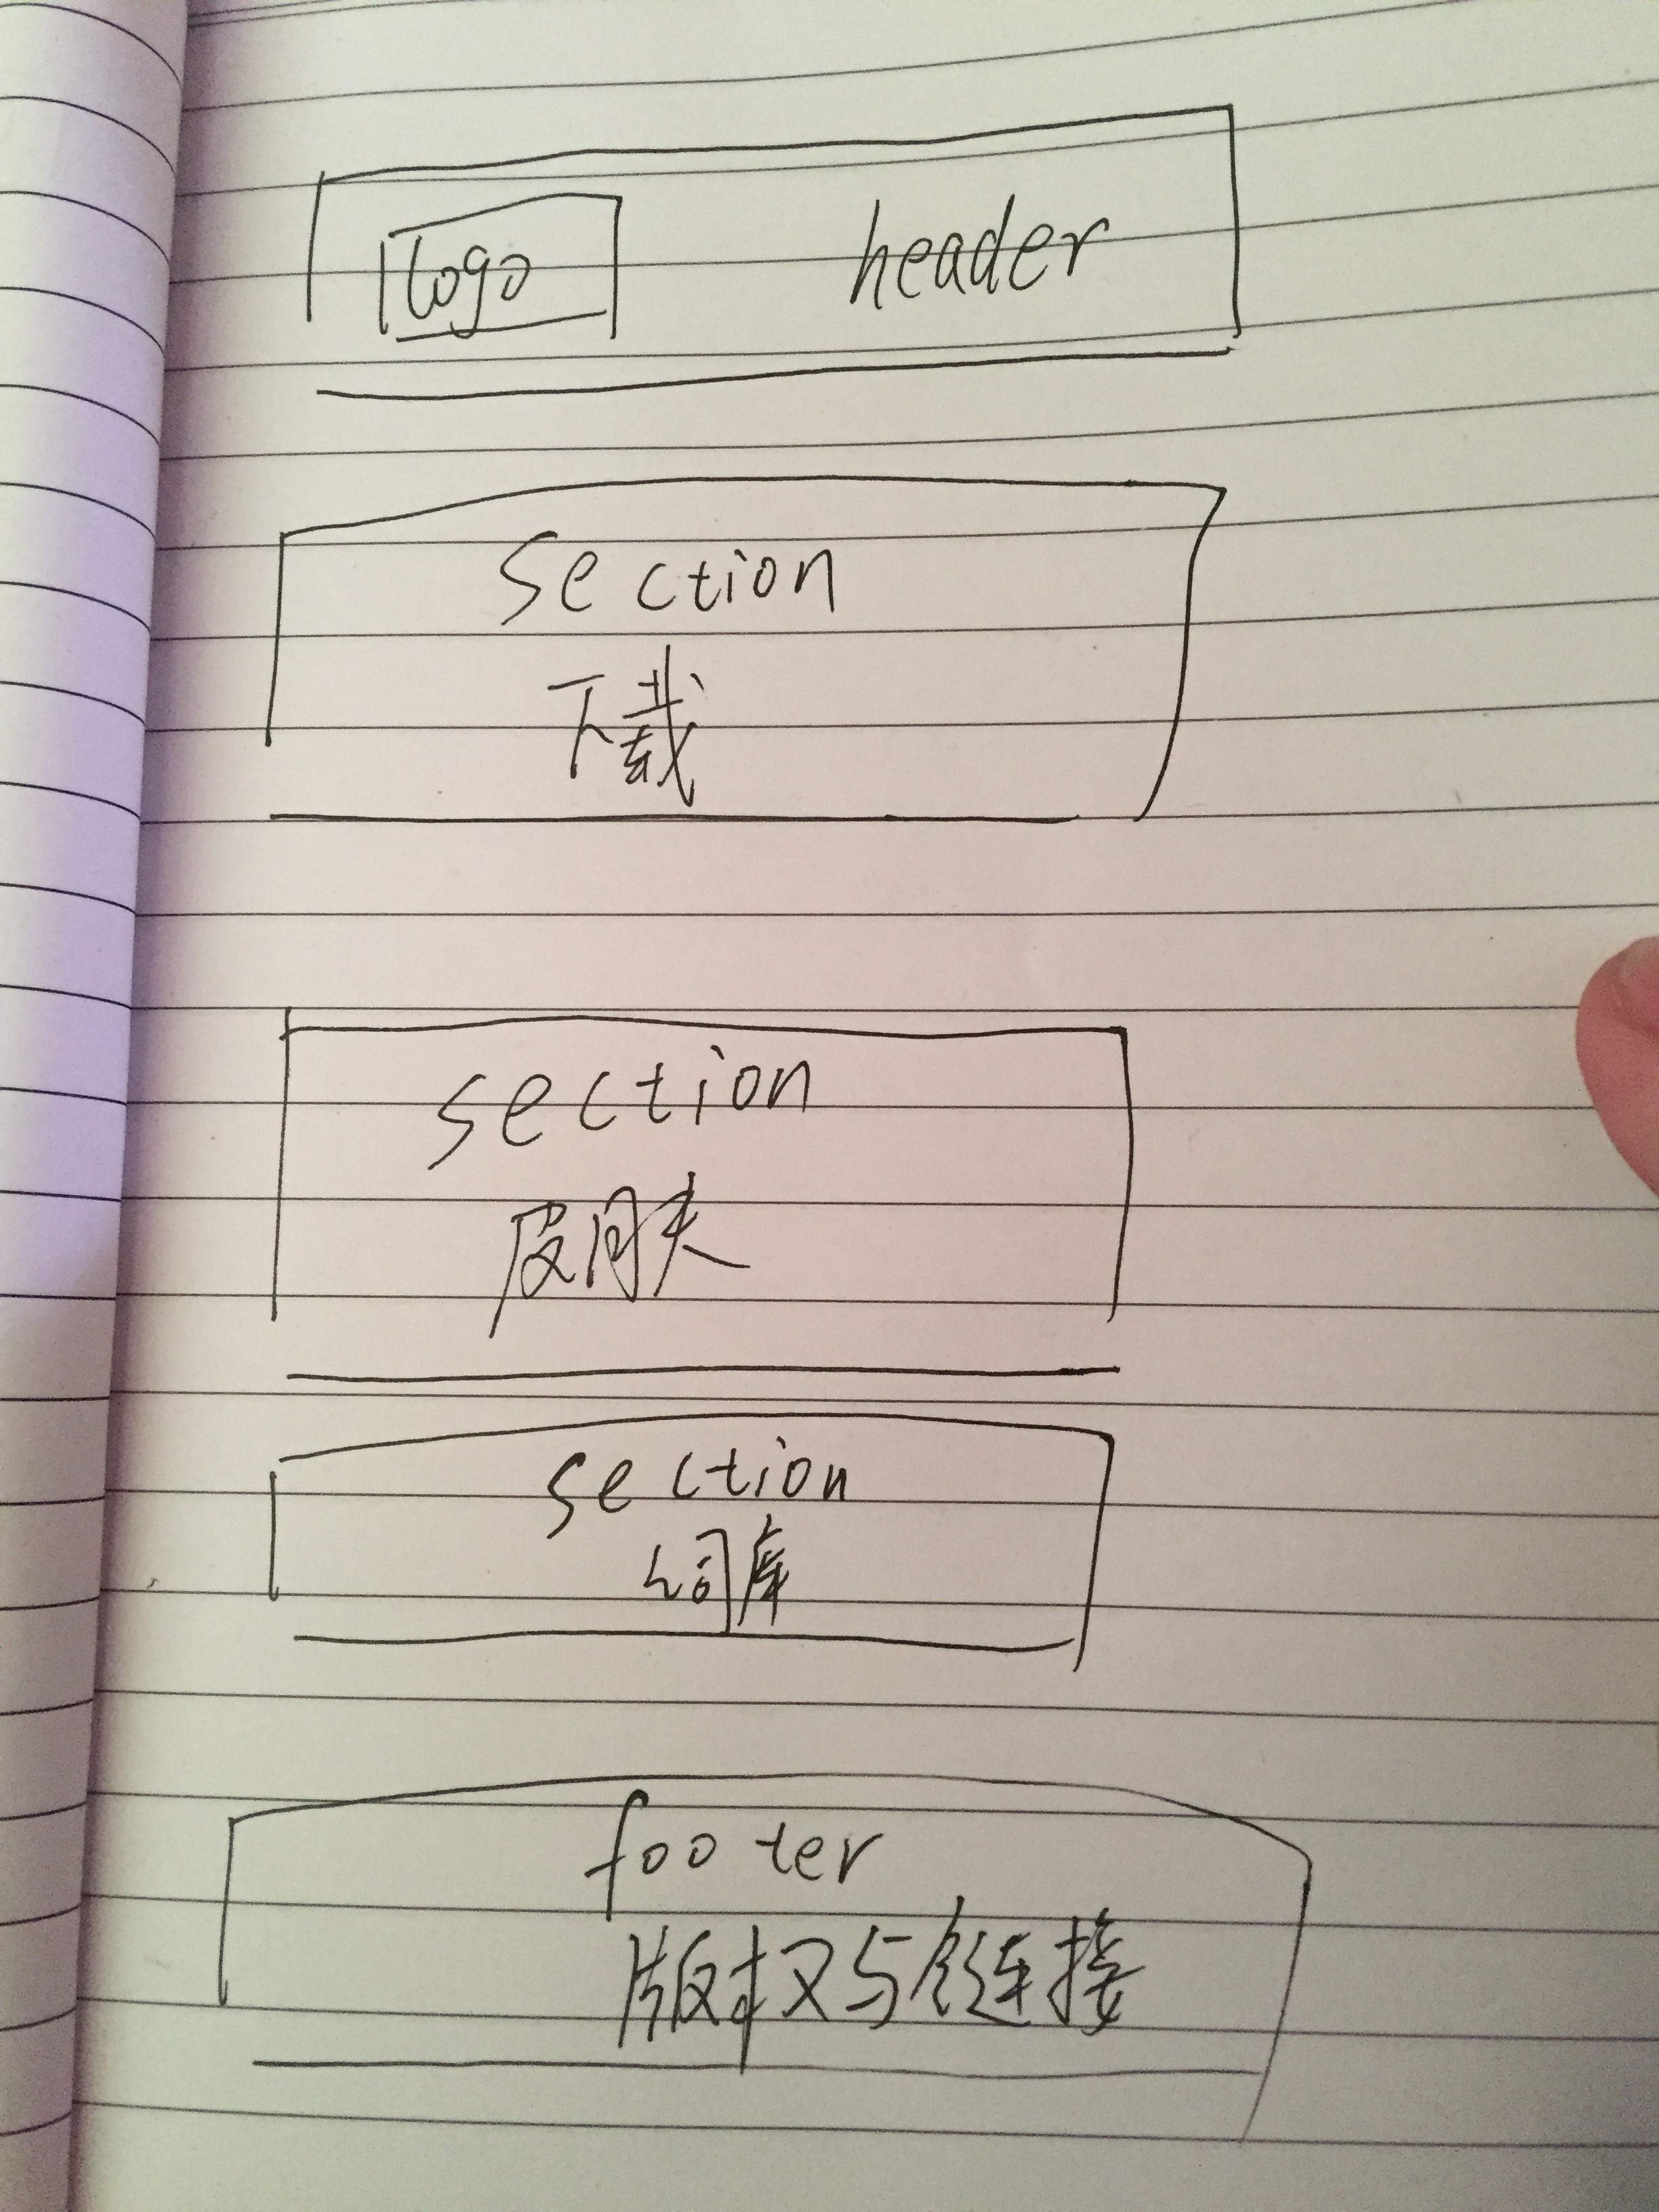 logo header
section
下载
section
皮肤
section
词库
footer
版权与链接